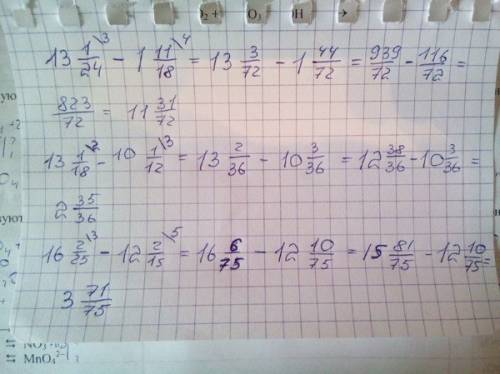 2 + O₃ Н
13 1/24 \3 − 1 11/18 \4 = 13 3/72 − 1 44/72 = 939/72 − 116/72 =
823/72 = 11 31/72
13 1/18 \2 − 10 1/12 \3 = 13 2/36 − 10 3/36 = 12 38/36 − 10 3/36 =
2 35/36
16 2/25 \3 − 12 2/15 \5 = 16 6/75 − 12 10/75 = 15 81/75 − 12 10/75 =
3 71/75
MnO₄²⁻